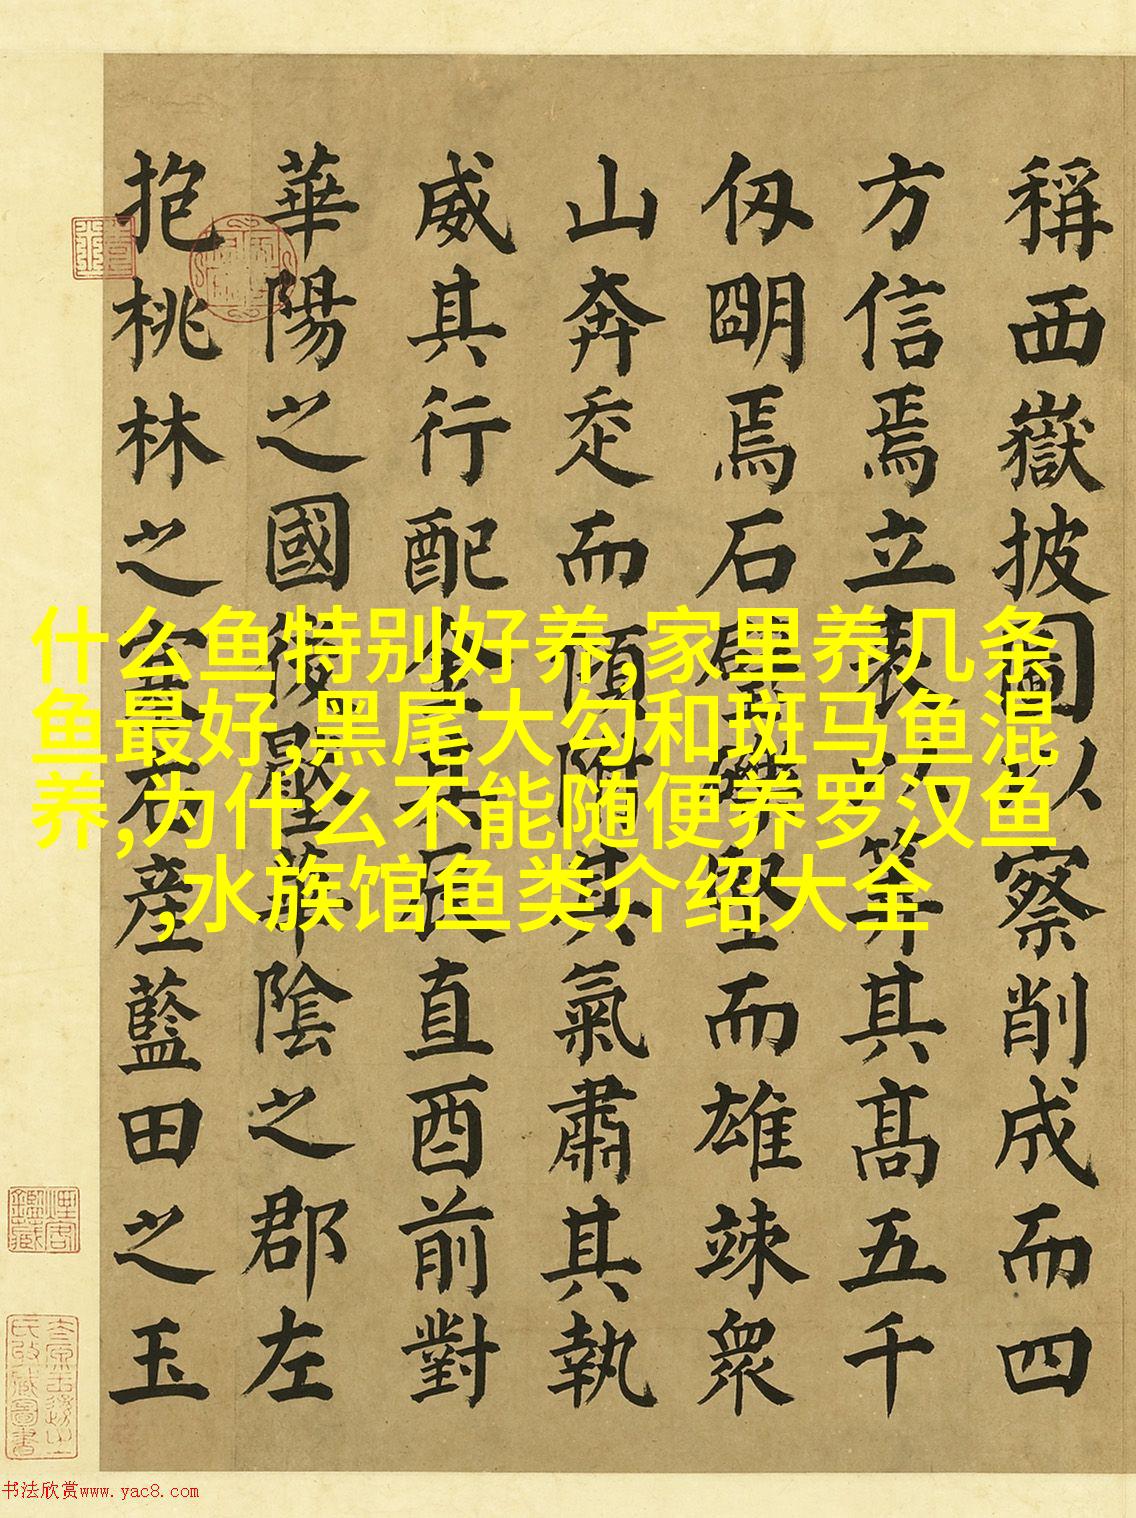 稱西嶽披圖以察削成而四
方信焉立表以筭其髙五千
仭朙焉石堅而雄竦衆
山奔赱而傾附其氣肅其執
威其行配金其辰直酉前對
華陽之國後壓華陰之郡左
抱桃林之塞右産藍田之玉
什么鱼特别好养,家里养几条
鱼最好,黑尾大勾和斑马鱼混
养,为什么不能随便养罗汉鱼
,水族馆鱼类介绍大全
书法欣赏www.yac8.com